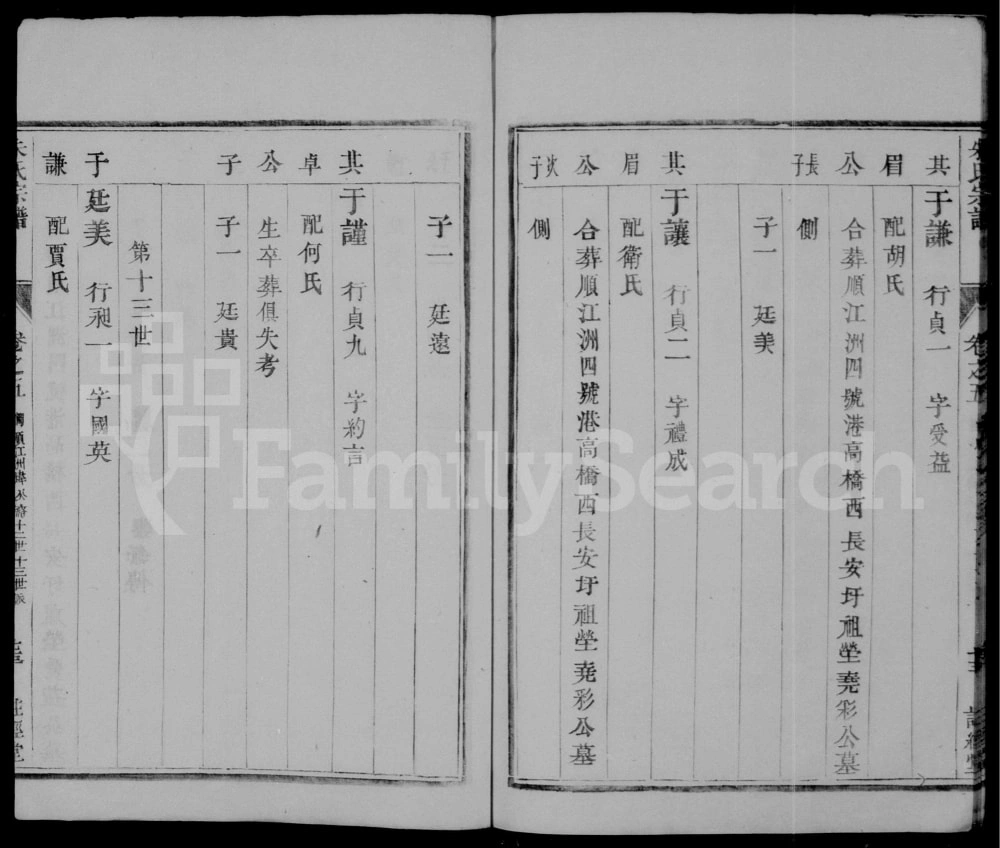 其眉公長子
于謙 行貞一 字受益
配胡氏
合葬順江洲四號港高橋西長安圩祖塋堯彩公墓
側
子一 廷美
其眉公次子
于讓 行貞二 字禮成
配衛氏
合葬順江洲四號港高橋西長安圩祖塋堯彩公墓
側
子一 廷遠
其卓公子
于謹 行貞九 字約言
配何氏
生卒葬俱失考
子一 廷貴
第十三世
于謙
廷美 行昶一 字國英
配賈氏
朱氏宗譜
卷之五
FamilySearch